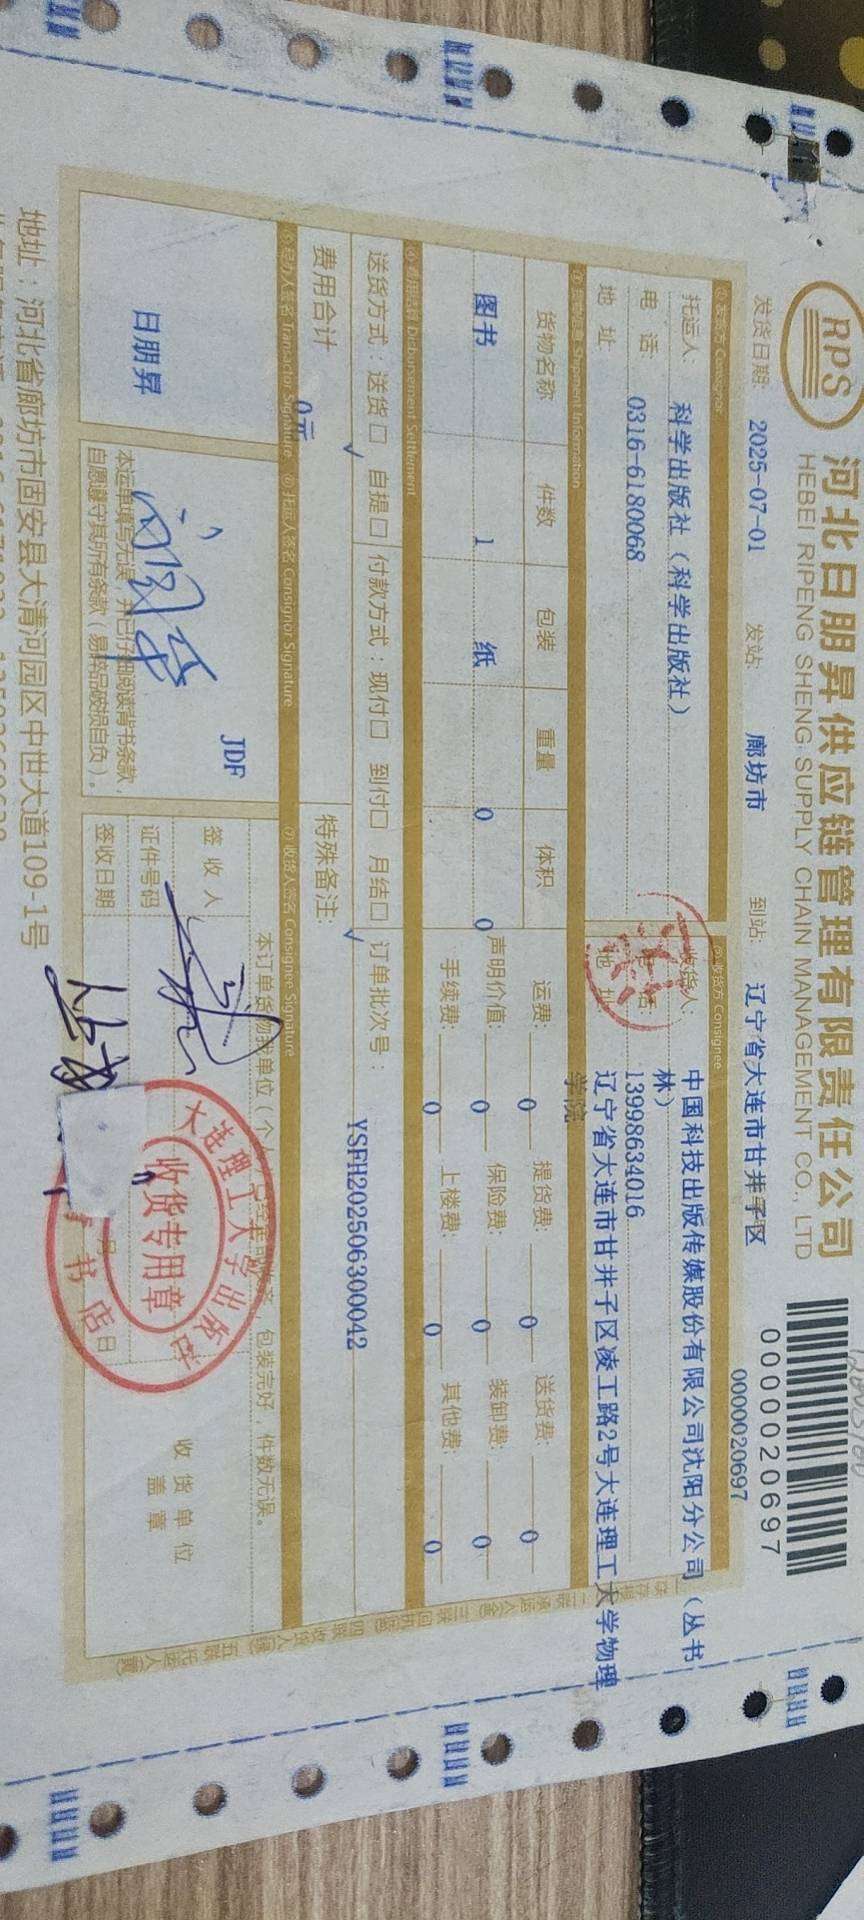 RPS
河北日朋昇供应链管理有限责任公司
HEBEI RIPENG SHENG SUPPLY CHAIN MANAGEMENT CO., LTD
0000020697
0000020697
发货日期: 2025-07-01 发站: 廊坊市 到站: 辽宁省大连市甘井子区
①发货方 Consignor
②收货方 Consignee
托运人 科学出版社(科学出版社)
电话: 0316-6180068
地址
收货人: 中国科技出版传媒股份有限公司沈阳分公司(丛书林)
13998634016
地址 辽宁省大连市甘井子区凌工路2号大连理工大学物理学院
Shipment Information
货物名称 件数 包装 重量 体积
图书 1 纸 0 0
运费: 0 提货费: 0 送货费: 0
声明价值: 0 保险费: 0 装卸费: 0
手续费: 0 上楼费: 0 其他费: 0
④费用结算 Disbursement Settlement
送货方式:送货□ 自提□ 付款方式:现付□ 到付□ 月结□ 订单批次号: YSFH202506300042
✓ ✓
费用合计 0元 特殊备注:
⑤经办人签名 Transactor Signature
⑥托运人签名 Consignor Signature
⑦收货人签名 Consignee Signature
日朋昇
JDF
本运单填写无误,并已仔细阅读背书条款,
自愿遵守其所有条款(易碎品破损自负)。
包装完好,件数无误。
签收人
证件号码
签收日期 月 日
收货单位
盖章
大连理工大学出版社
收货专用章
书店
地址:河北省廊坊市固安县大清河园区中世大道109-1号